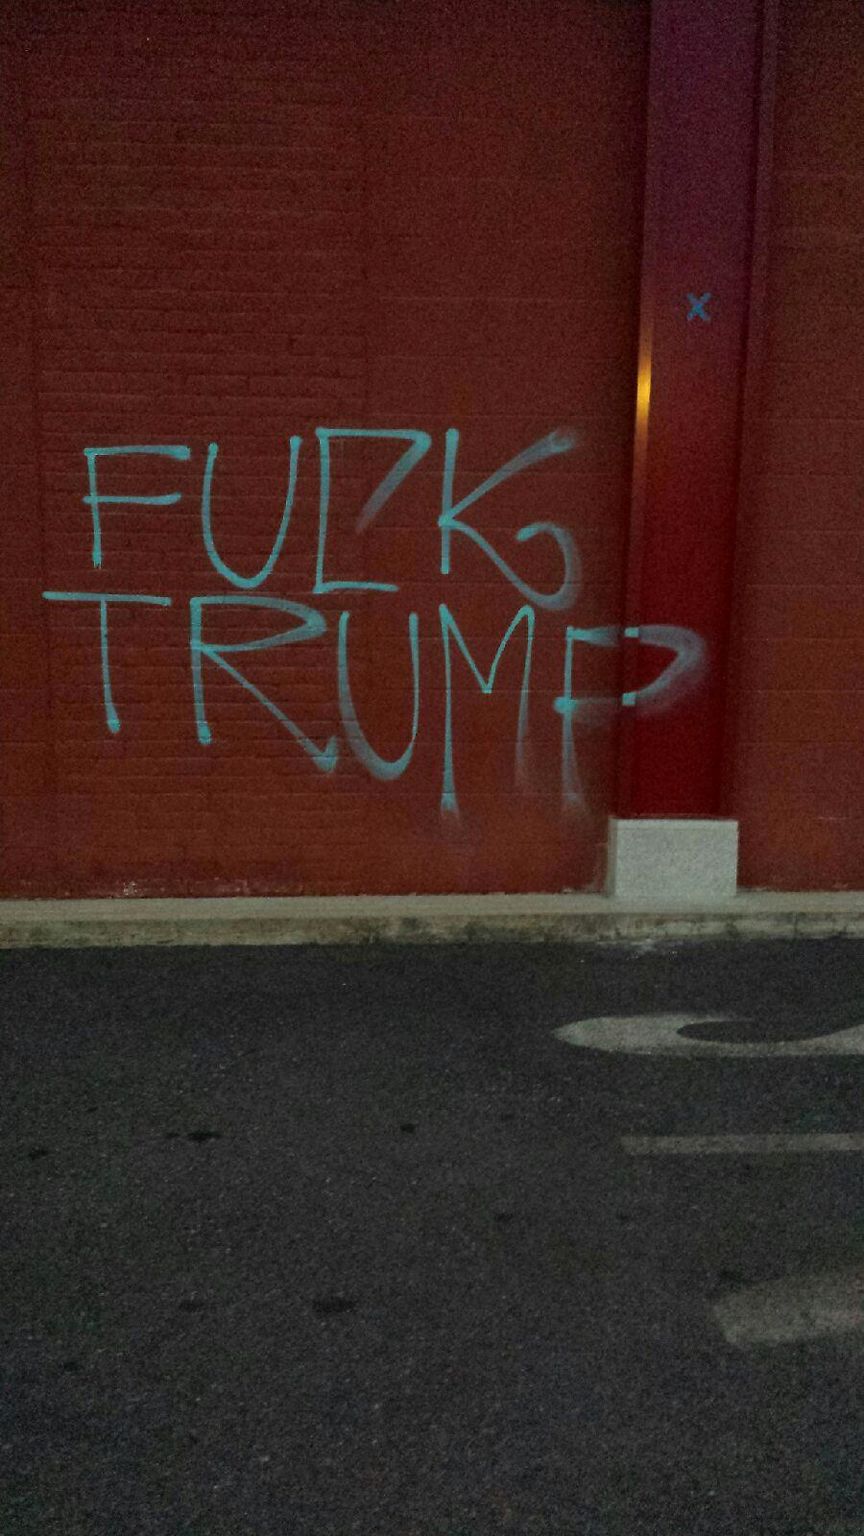 X
FUCK
TRUMP